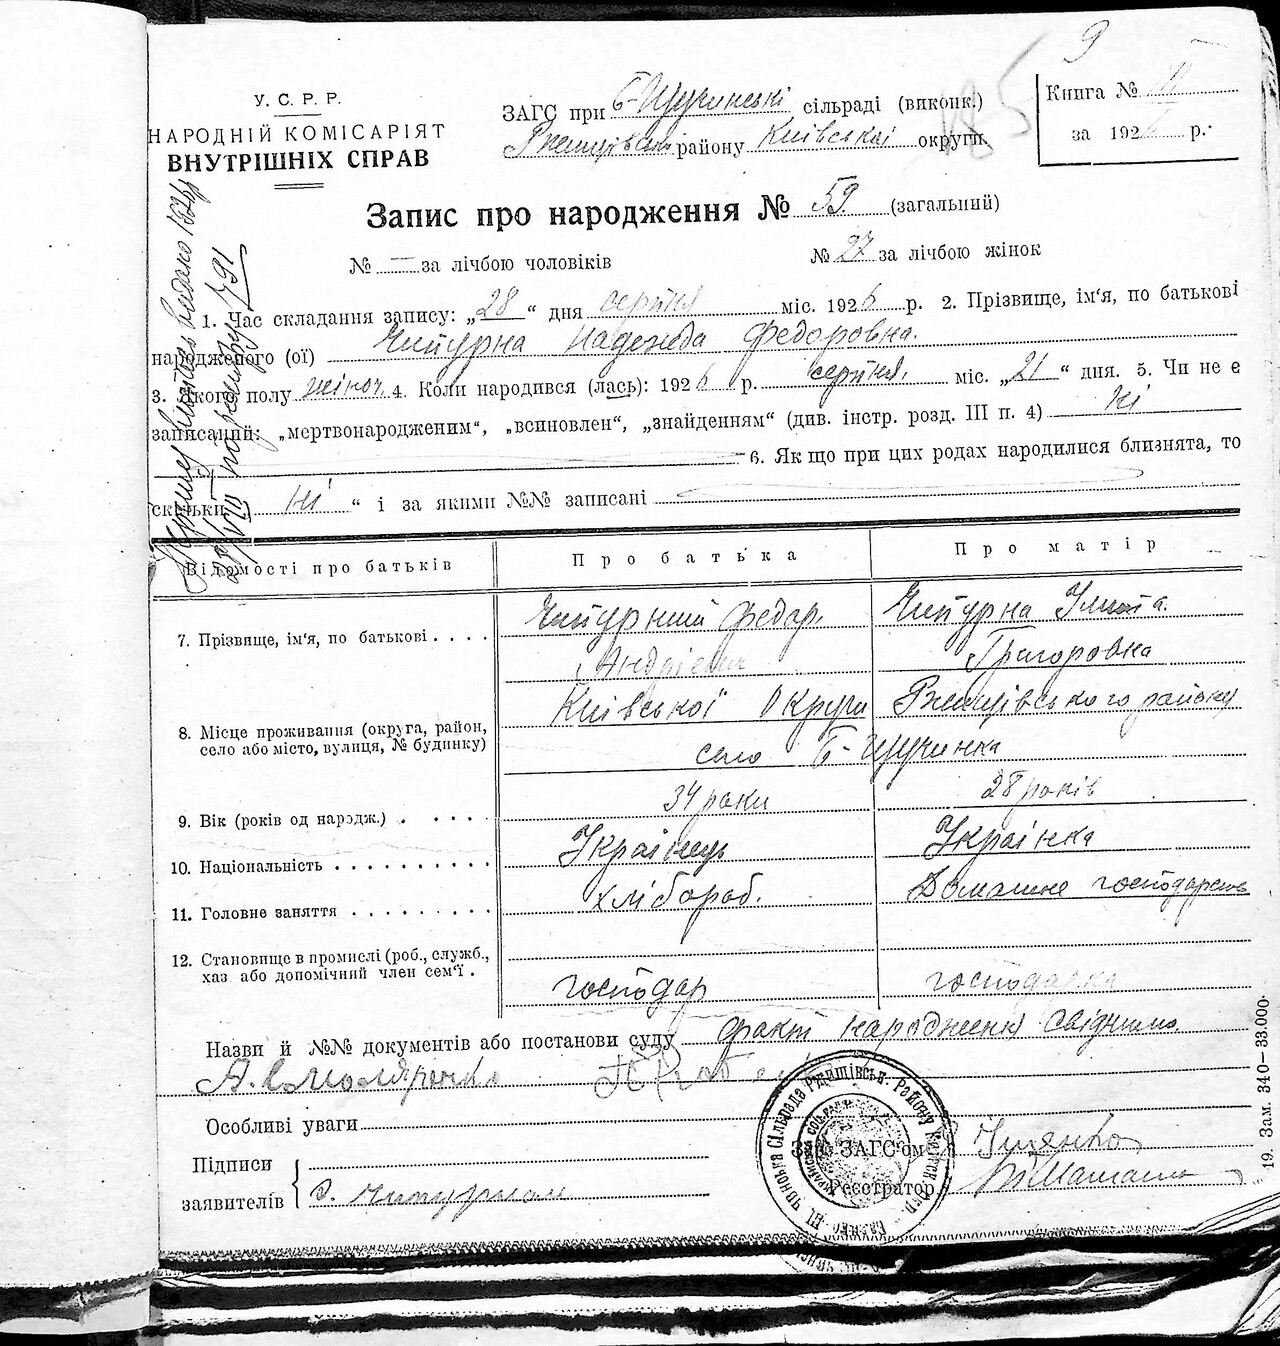 9
У. С. Р. Р.
НАРОДНІЙ КОМІСАРІЯТ
ВНУТРІШНІХ СПРАВ
ЗАГС при Б-Щучинські сільраді (виконк.)
Ржищівськ району Київської округи.
Книга № III
за 1926 р.
Запис про народження № 59. (загальний)
№ — за лічбою чоловіків № 27 за лічбою жінок
1. Час складання запису: „28“ дня серпня міс. 1926 р. 2. Прізвище, ім'я, по батькові
народженого (ої) Чипурна Надежда Федоровна.
3. Якого полу жіноч. 4. Коли народився (лась): 1926 р. серпня, міс. „21“ дня. 5. Чи не є
записаний: „мертвонародженим“, „всиновлен“, „знайденням“ (див. інстр. розд. III п. 4) ні
6. Як що при цих родах народилися близнята, то
скільки „ ні “ і за якими №№ записані
Відомості про батьків Про батька Про матір
7. Прізвище, ім'я, по батькові . . . . Чипурний Федар. Чипурна Улита.
Андрієвич Григоровна
8. Місце проживання (округа, район, Київської Округи Ржищівського району
село або місто, вулиця, № будинку) село Б-Щучинка
9. Вік (років од народж.) . . . . . 34 роки 28 років
10. Національність . . . . . . . . . . Українець Українка
11. Головне заняття . . . . . . . . . хлібороб. Домашне господарств
12. Становище в промислі (роб., служб.,
хаз або допомічний член сем'ї . господар господарка
Назви й №№ документів або постанови суду факт народження свідчимо
Особливі уваги
Підписи
заявителів
Зав. ЗАГС'ом Іщенко
Реєстратор
19. Зам. 340—33.000